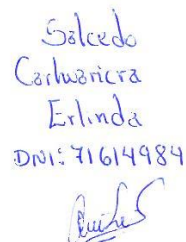 Salcedo
Carhuaricra
Erlinda
DNI: 71614984